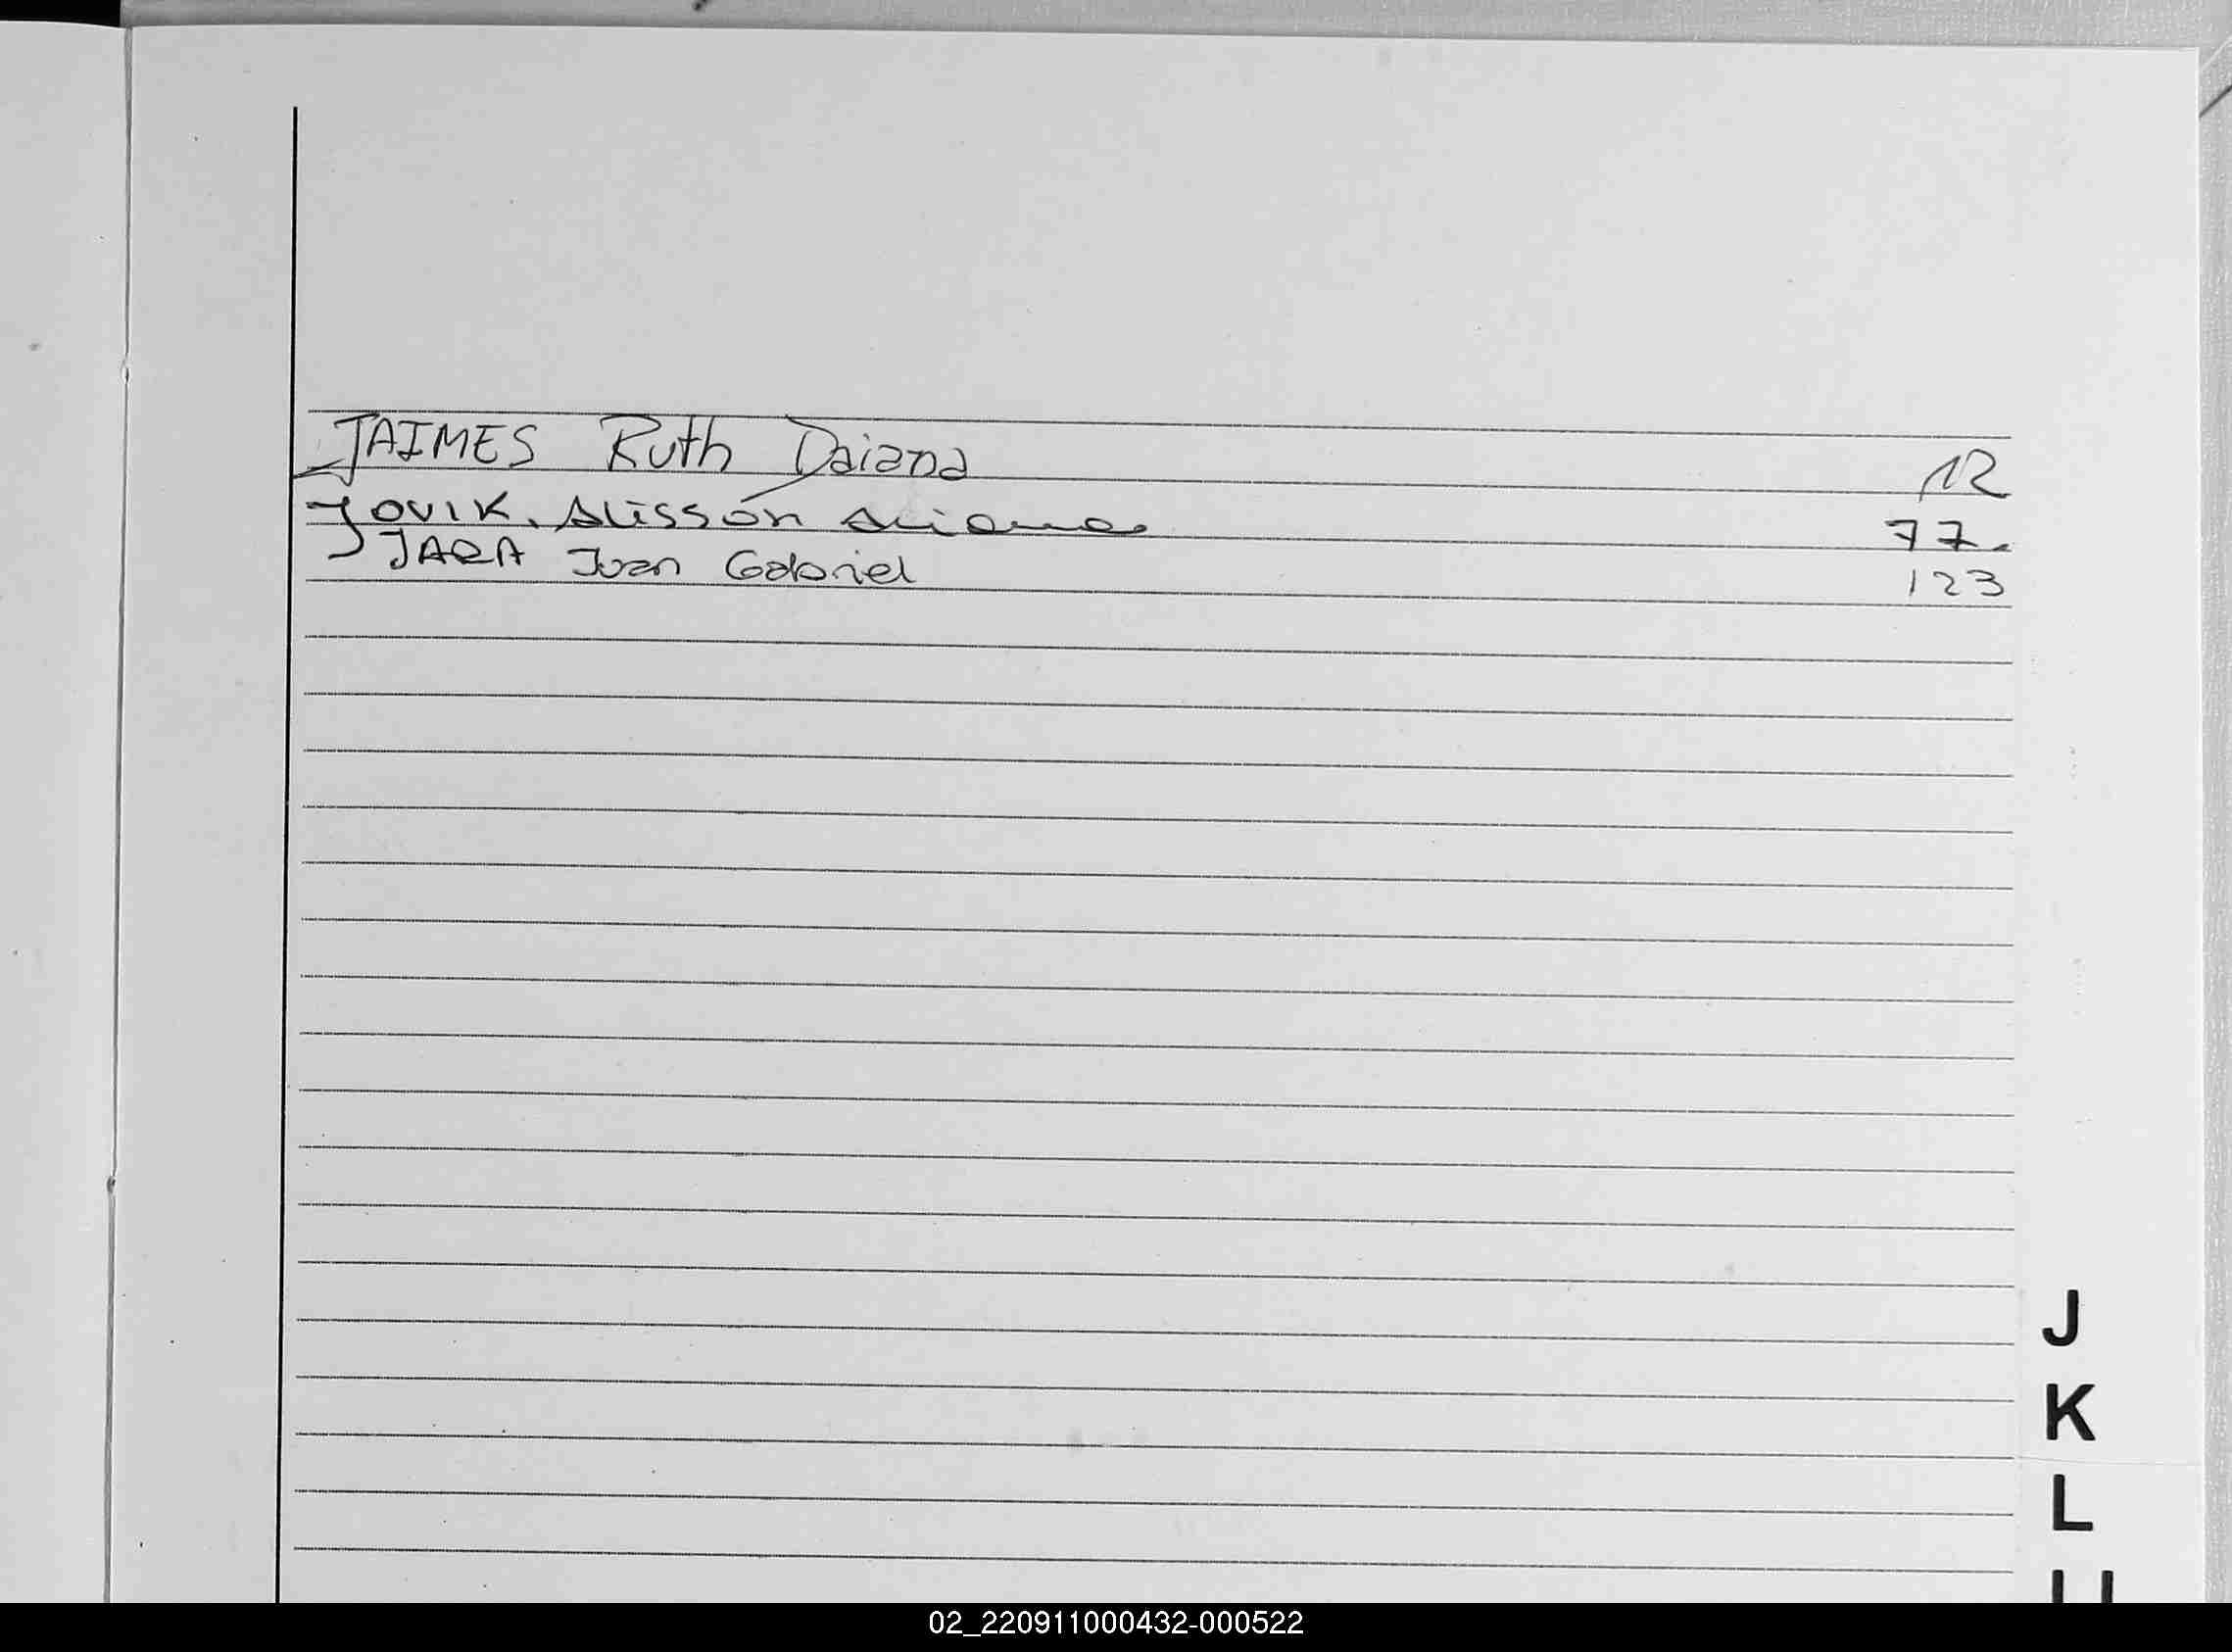 JAIMES Ruth Daiana 12
JOVIK. Alisson 77.
JARA Juan Gabriel 123
J
K
L
02_220911000432-000522